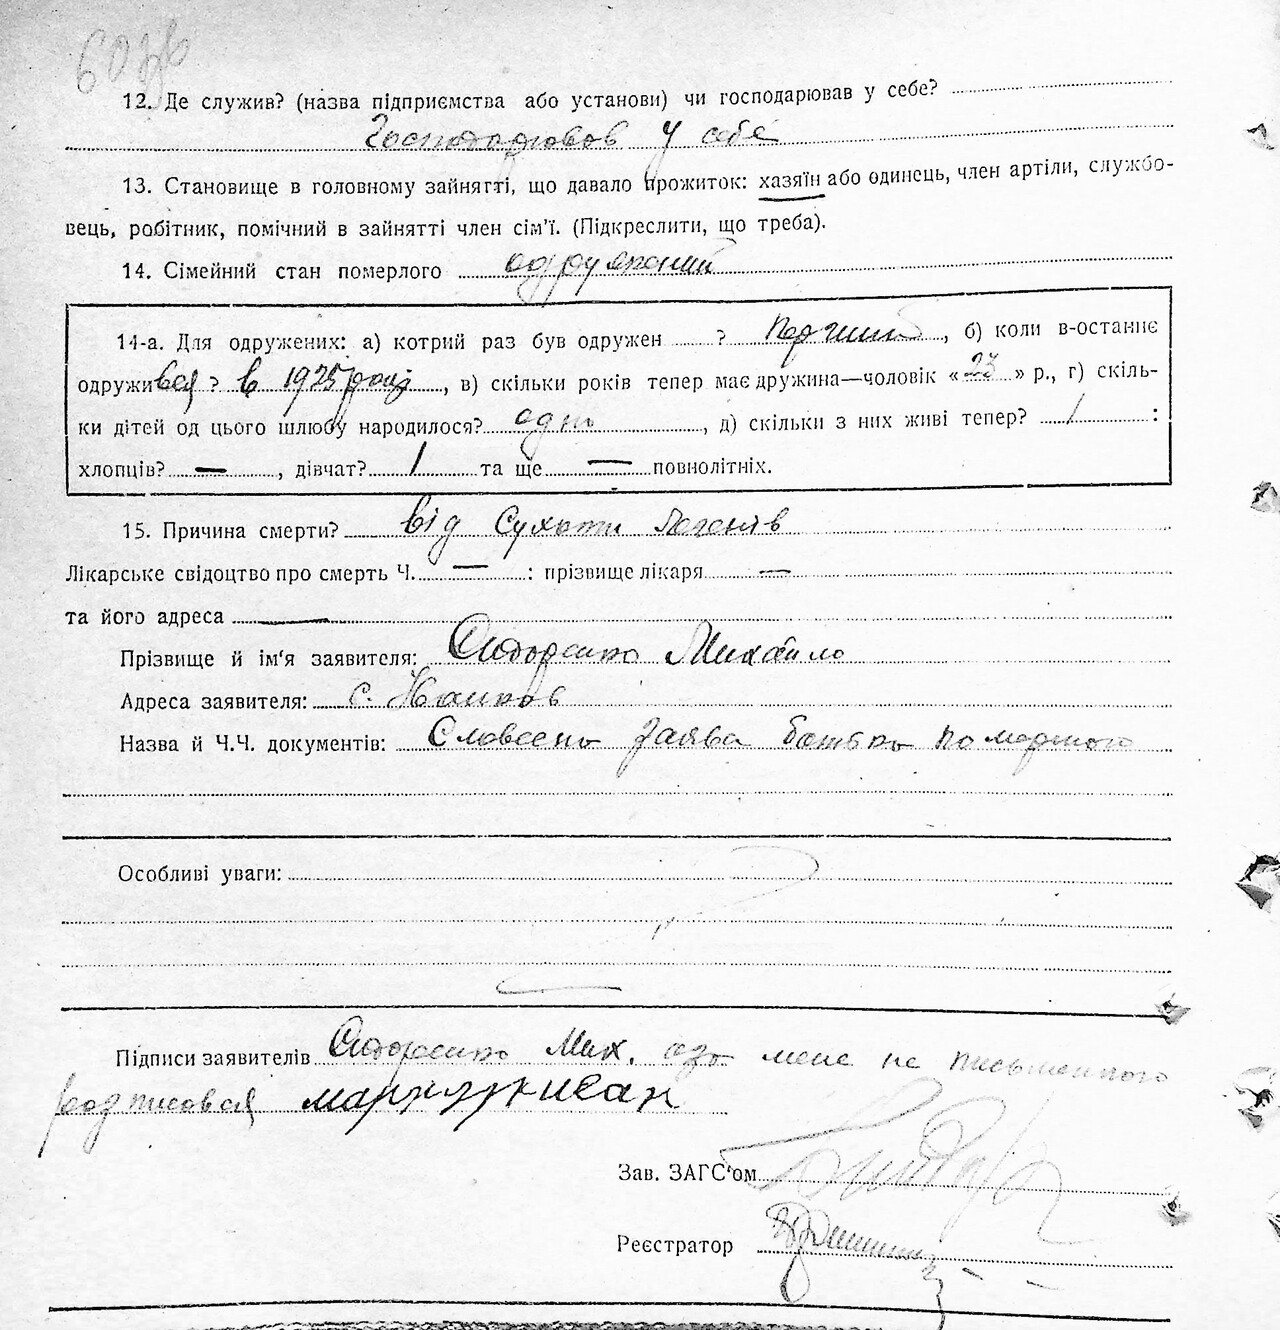 60зв
12. Де служив? (назва підприємства або установи) чи господарював у себе?
Господарював у себе
13. Становище в головному зайнятті, що давало прожиток: хазяїн або одинець, член артіли, службо-
вець, робітник, помічний в зайнятті член сім'ї. (Підкреслити, що треба).
14. Сімейний стан померлого одружений
14-а. Для одружених: а) котрий раз був одружен ? Перший, б) коли в-останнє
одружився? в 1925 році, в) скільки років тепер має дружина—чоловік «23» р., г) скіль-
ки дітей од цього шлюбу народилося? одно, д) скільки з них живі тепер? 1 :
хлопців? —, дівчат? 1 та ще — повнолітніх.
15. Причина смерти? від Сухоти легенів
Лікарське свідоцтво про смерть Ч. — : прізвище лікаря —
та його адреса —
Прізвище й ім'я заявителя: Сидоренко Михайло
Адреса заявителя: с.
Назва й Ч.Ч. документів: Словесно заява батько помершого
Особливі уваги:
Підписи заявителів Сидоренко Мих. а за мене не письменного
росписовся
Зав. ЗАГС'ом
Реєстратор